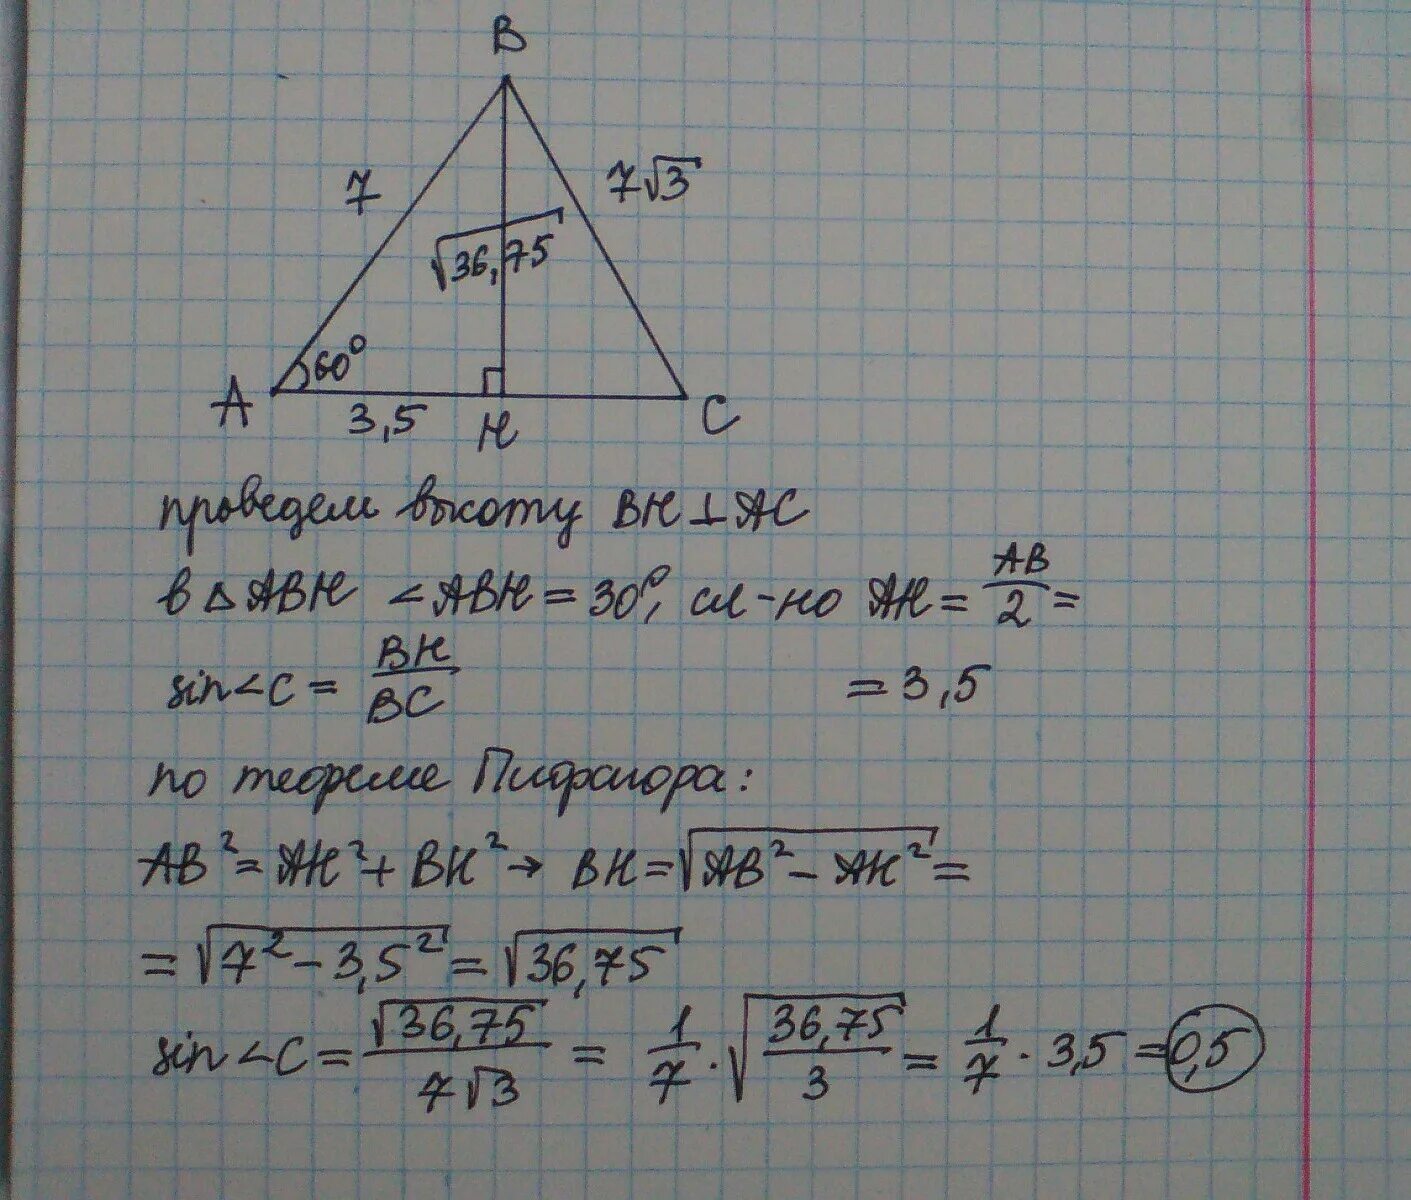 B
7
7√3
√36,75
60°
A
3,5
H
C
проведем высоту BH⊥AC
в △ABH ∠ABH = 30°, сл-но AH = AB/2 =
= 3,5
sin∠C = BH/BC
по теореме Пифагора:
AB² = AH² + BH² → BH = √(AB² - AH²) =
= √(7² - 3,5²) = √36,75
sin∠C = √36,75/7√3 = 1/7 · √(36,75/3) = 1/7 · 3,5 = 0,5